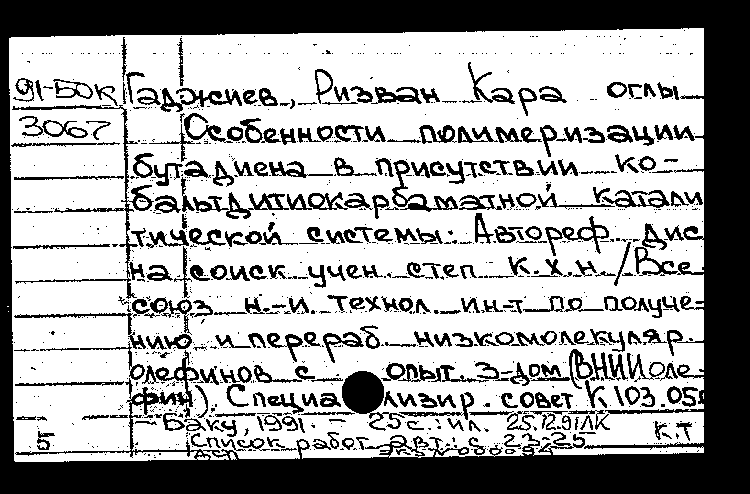 91-БОК Гаджиев, Ризван Кара оглы
3067 Особенности полимеризации
бутадиена в присутствии ко-
бальтдитиокарбаматной катали
тической системы: Автореф. дис
на соиск. учен. степ. к.х.н. / Все-
союз н.-и. технол. ин-т по получе-
нию и перераб. низкомолекуляр.
олефинов с опыт. з-дом (ВНИИоле-
фин). Специализир. совет К 103.05
- Баку, 1991. - 25с.: ил. 25.12.91ЛК
5 Список работ авт.: с 23-25 К.Т